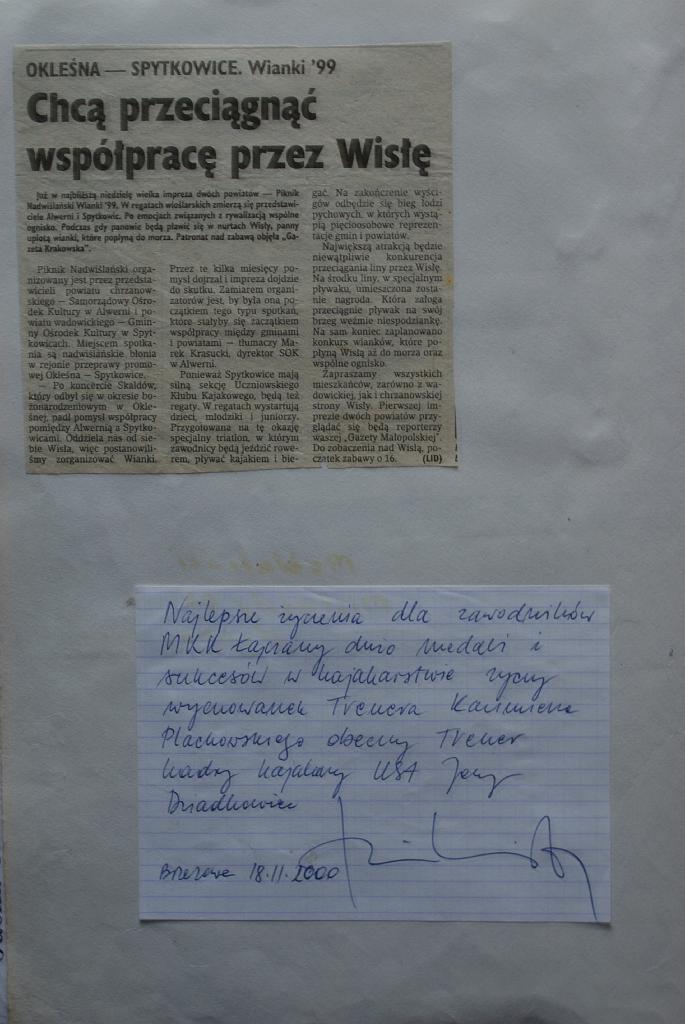 OKLEŚNA — SPYTKOWICE. Wianki '99
Chcą przeciągnąć
współpracę przez Wisłę
Już w najbliższą niedzielę wielka impreza dwóch powiatów — Piknik
Nadwiślański Wianki '99. W regatach wioślarskich zmierzą się przedstawi-
ciele Alwerni i Spytkowic. Po emocjach związanych z rywalizacją wspólne
ognisko. Podczas gdy panowie będą pławić się w nurtach Wisły, panny
uplotą wianki, które popłyną do morza. Patronat nad zabawą objęła „Ga-
zeta Krakowska".
Piknik Nadwiślański orga-
nizowany jest przez przedsta-
wicieli powiatu chrzanow-
skiego — Samorządowy Ośro-
dek Kultury w Alwerni i po-
wiatu wadowickiego — Gmin-
ny Ośrodek Kultury w Spyt-
kowicach. Miejscem spotka-
nia są nadwiślańskie błonia
w rejonie przeprawy promo-
wej Okleśna — Spytkowice.
— Po koncercie Skaldów,
który odbył się w okresie bo-
żonarodzeniowym w Okle-
śnej, padł pomysł współpracy
pomiędzy Alwernią a Spytko-
wicami. Oddziela nas od sie-
bie Wisła, więc postanowili-
śmy zorganizować Wianki.
Przez te kilka miesięcy po-
mysł dojrzał i impreza dojdzie
do skutku. Zamiarem organi-
zatorów jest, by była ona po-
czątkiem tego typu spotkań,
które stałyby się zaczątkiem
współpracy między gminami
i powiatami — tłumaczy Ma-
rek Krasucki, dyrektor SOK
w Alwerni.
Ponieważ Spytkowice mają
silną sekcję Uczniowskiego
Klubu Kajakowego, będą też
regaty. W regatach wystartują
dzieci, młodziki i juniorzy.
Przygotowana na tę okazję
specjalny triatlon, w którym
zawodnicy będą jeździć rowe-
rem, pływać kajakiem i bie-
gać. Na zakończenie wyści-
gów odbędzie się bieg łodzi
pychowych, w których wystą-
pią pięcioosobowe reprezen-
tacje gmin i powiatów.
Największą atrakcją będzie
niewątpliwie konkurencja
przeciągania liny przez Wisłę.
Na środku liny, w specjalnym
pływaku, umieszczona zosta-
nie nagroda. Która załoga
przeciągnie pływak na swój
brzeg weźmie niespodziankę.
Na sam koniec zaplanowano
konkurs wianków, które po-
płyną Wisłą aż do morza oraz
wspólne ognisko.
Zapraszamy wszystkich
mieszkańców, zarówno z wa-
dowickiej, jak i chrzanowskiej
strony Wisły. Pierwszej im-
prezie dwóch powiatów przy-
glądać się będą reporterzy
waszej „Gazety Małopolskiej".
Do zobaczenia nad Wisłą, po-
czątek zabawy o 16. (LID)
Najlepsze życzenia dla zawodników
MKK Łączany dużo medali i
sukcesów w kajakarstwie życzy
wychowanek Trenera Kazimierza
Plachowskiego obecny Trener
kadry kajakowy USA Jerzy
Dziadkowiec
Brzezowe 18.11.2000